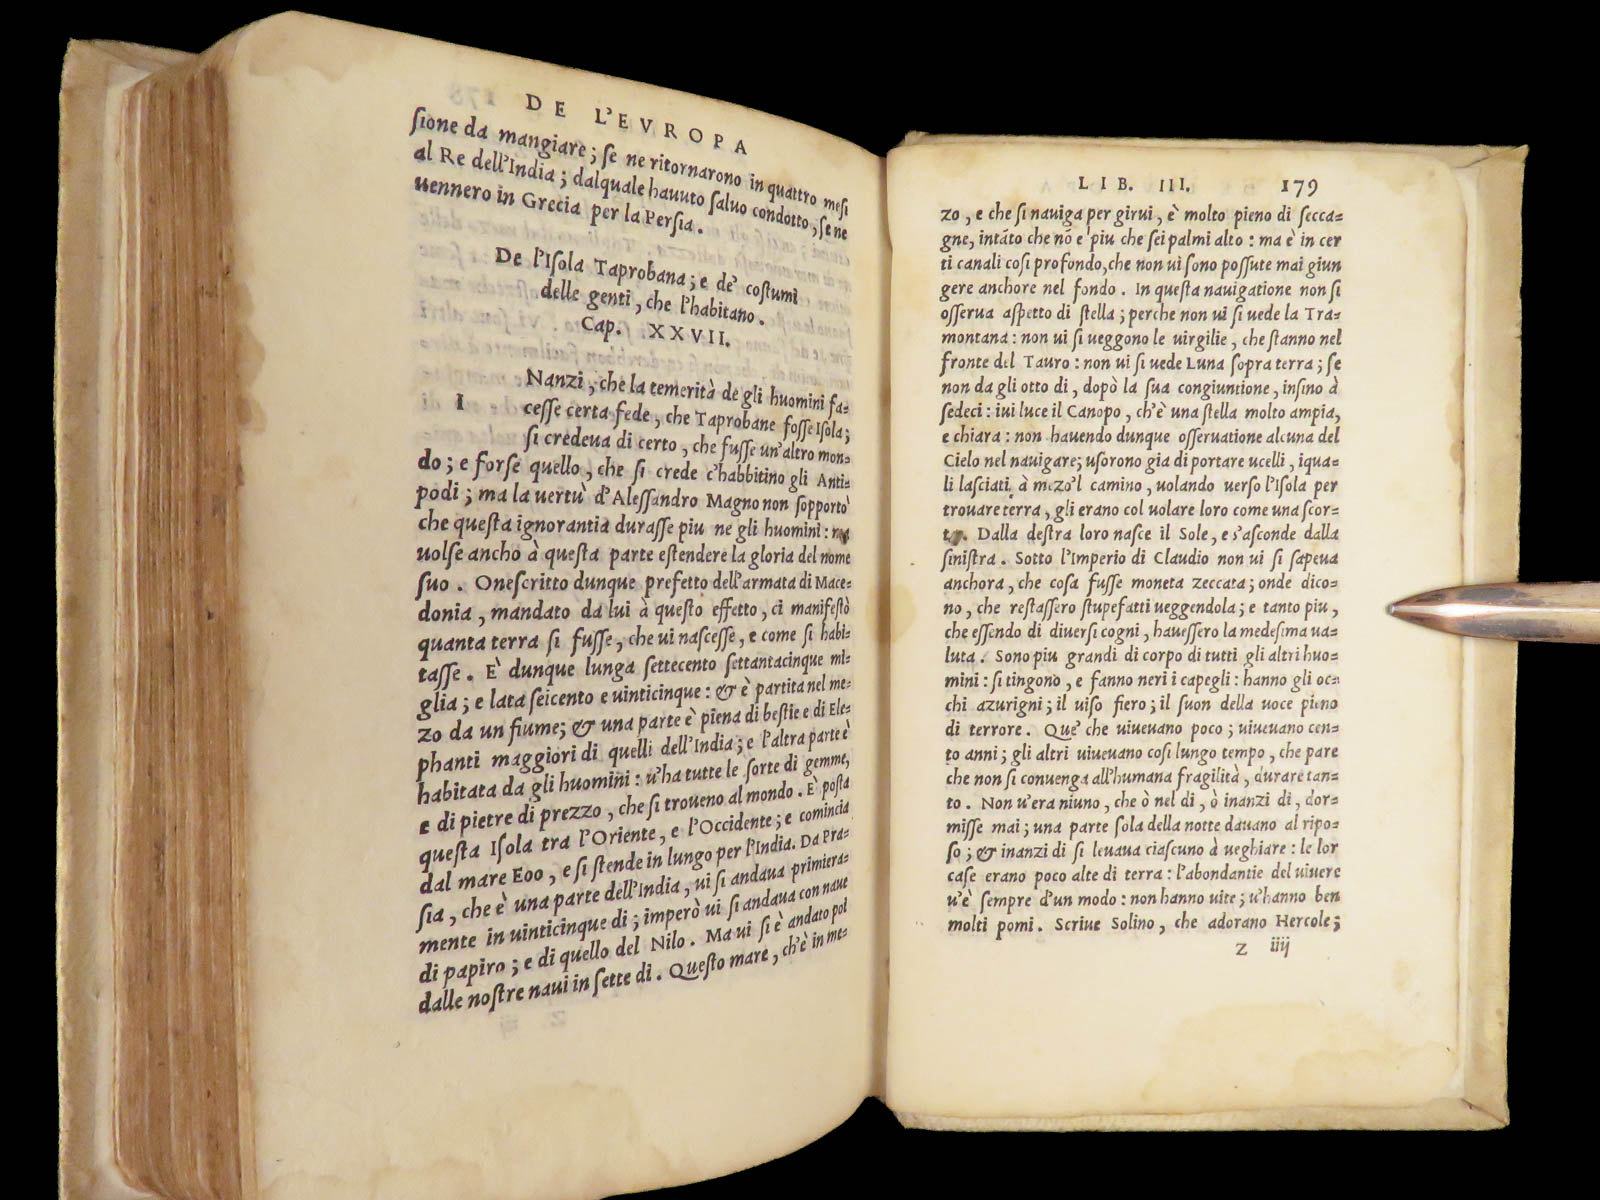 DE L'EVROPA
sione da mangiare; se ne ritornarono in quattro mesi
al Re dell'India; dalquale hauuto saluo condotto, se ne
uennero in Grecia per la Persia.
De l'Isola Taprobana; e de' costumi
delle genti, che l'habitano.
Cap. XXVII.
I Nanzi, che la temerità de gli huomini fa-
cesse certa fede, che Taprobane fosse Isola;
si credeua di certo, che fusse un'altro mon-
do; e forse quello, che si crede c'habbitino gli Anti-
podi; ma la uertù d'Alessandro Magno non sopportò
che questa ignorantia durasse piu ne gli huomini: ma
uolse ancho à questa parte estendere la gloria del nome
suo. Onescritto dunque prefetto dell'armata di Mace-
donia, mandato da lui à questo effetto, ci manifestò
quanta terra si fusse, che ui nascesse, e come si habi-
tasse. È dunque lunga settecento settantacinque mi-
glia; e lata seicento e uinticinque: & è partita nel me-
zo da un fiume; & una parte è piena di bestie e di Ele-
phanti maggiori di quelli dell'India; e l'altra parte è
habitata da gli huomini: u'ha tutte le sorte di gemme,
e di pietre di prezzo, che si troueno al mondo. È posta
questa Isola tra l'Oriente, e l'Occidente; e comincia
dal mare Eoo, e si stende in lungo per l'India. Da Pra-
sia, che è una parte dell'India, ui si andaua primiera-
mente in uinticinque di; imperò ui si andaua con naue
di papiro; e di quello del Nilo. Ma ui si è andato poi
dalle nostre naui in sette di. Questo mare, ch'è in me-
LIB. III. 179
zo, e che si nauiga per girui, è molto pieno di secca-
gne, intāto che nō e' piu che sei palmi alto: ma è in cer
ti canali cosi profondo, che non ui sono possute mai giun
gere anchore nel fondo. In questa nauigatione non si
osserua aspetto di stella; perche non ui si uede la Tra-
montana: non ui si ueggono le uirgilie, che stanno nel
fronte del Tauro: non ui si uede Luna sopra terra; se
non da gli otto di, dopò la sua congiuntione, insino à
sedeci: iui luce il Canopo, ch'è una stella molto ampia,
e chiara: non hauendo dunque osseruatione alcuna del
Cielo nel nauigare; usorono gia di portare ucelli, i qua-
li lasciati à mezo'l camino, uolando uerso l'Isola per
trouare terra, gli erano col uolare loro come una scor-
ta. Dalla destra loro nasce il Sole, e s'asconde dalla
sinistra. Sotto l'Imperio di Claudio non ui si sapeua
anchora, che cosa fusse moneta zeccata; onde dico-
no, che restassero stupefatti ueggendola; e tanto piu,
che essendo di diuersi cogni, hauessero la medesima ua-
luta. Sono piu grandi di corpo di tutti gli altri huo-
mini: si tingono, e fanno neri i capegli: hanno gli oc-
chi azurigni; il uiso fiero; il suon della uoce pieno
di terrore. Que' che uiueuano poco; uiueuano cen-
to anni; gli altri uiueuano cosi lungo tempo, che pare
che non si conuenga all'humana fragilità, durare tan-
to. Non u'era niuno, che ò nel di, ò inanzi di, dor-
misse mai; una parte sola della notte dauano al ripo-
so; & inanzi di si leuaua ciascuno à ueghiare: le lor
case erano poco alte di terra: l'abondantie del uiuere
u'è sempre d'un modo: non hanno uite; u'hanno ben
molti pomi. Scriue Solino, che adorano Hercole;
Z iiij